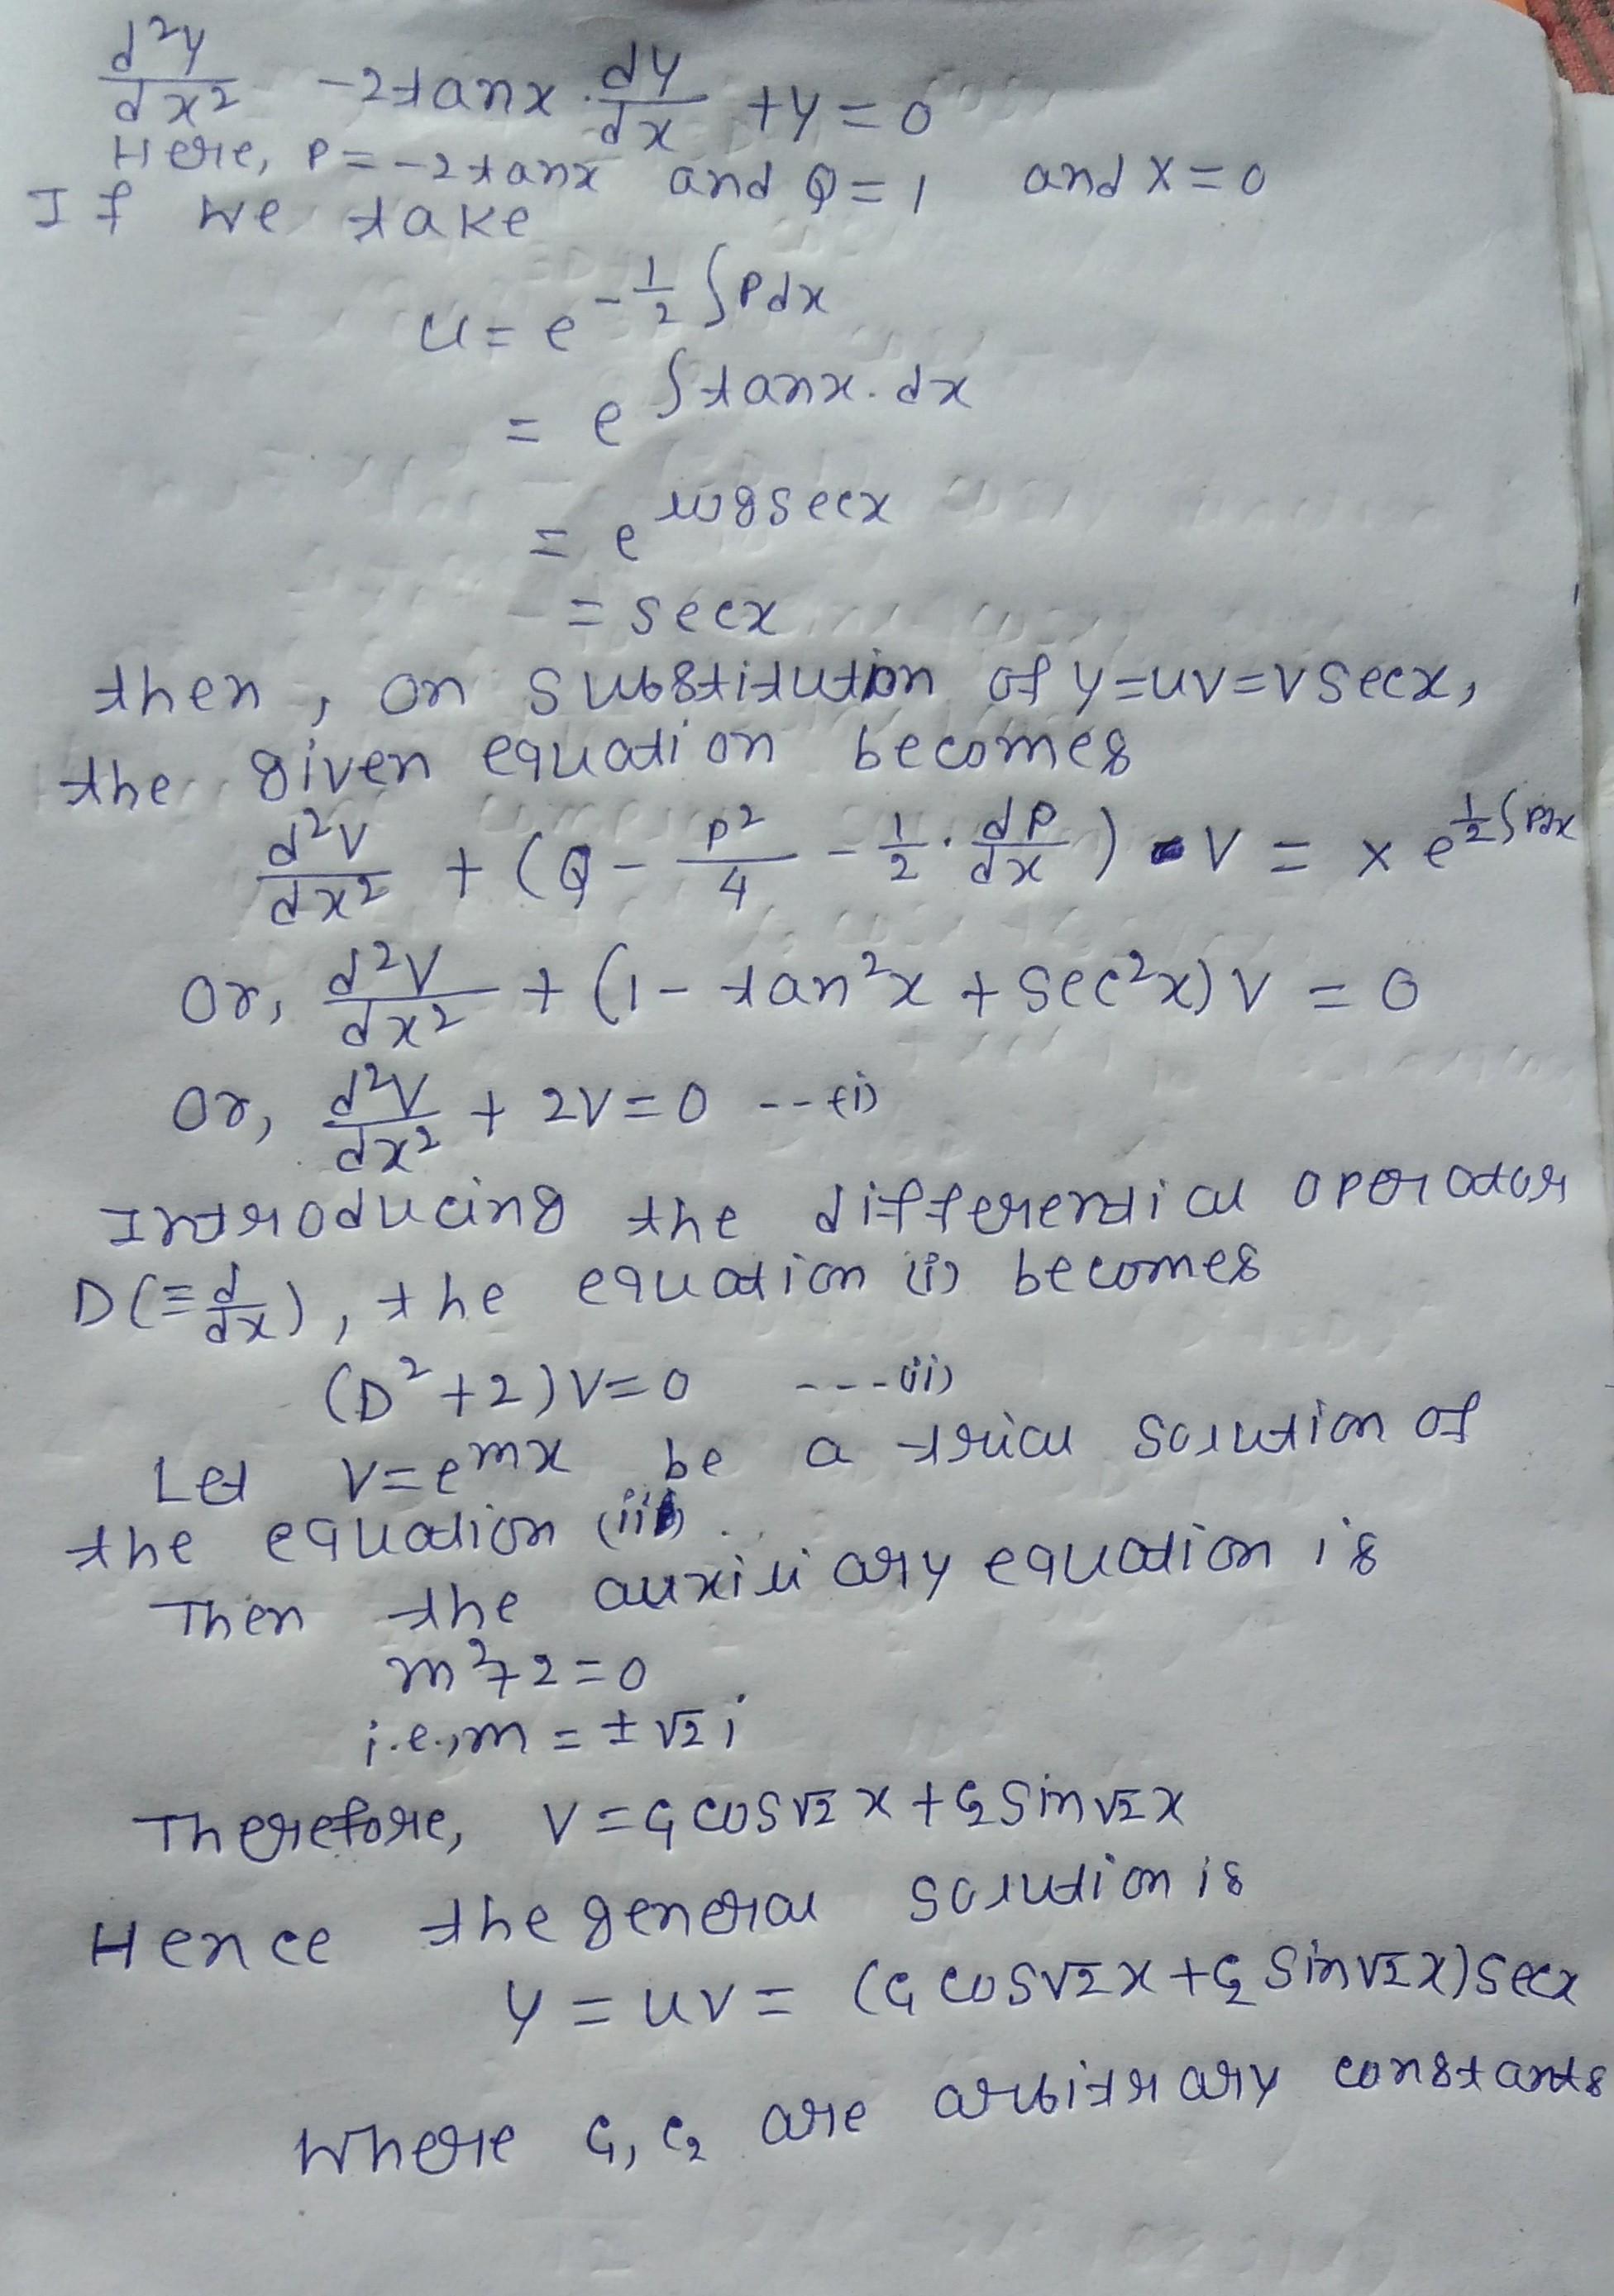 d²y/dx² - 2tanx · dy/dx + y = 0
Here, P = -2tanx and Q = 1 and X = 0
If we take
u = e^(-1/2 ∫Pdx)
= e^(∫tanx.dx)
= e^(logsecx)
= secx
then, on substitution of y=uv=vsecx,
the given equation becomes
d²v/dx² + (Q - P²/4 - 1/2 · dP/dx) v = X e^(1/2 ∫Pdx)
Or, d²v/dx² + (1 - tan²x + sec²x) v = 0
Or, d²v/dx² + 2v = 0 --- (i)
Introducing the differential operator
D(≡ d/dx), the equation (i) becomes
(D² + 2)v = 0 ---- (ii)
Let v = e^(mx) be a trial solution of
the equation (ii).
Then the auxiliary equation is
m² + 2 = 0
i.e., m = ± √2 i
Therefore, v = c₁ cos√2 x + c₂ sin√2 x
Hence the general solution is
y = uv = (c₁ cos√2 x + c₂ sin√2 x) secx
Where c₁, c₂ are arbitrary constants